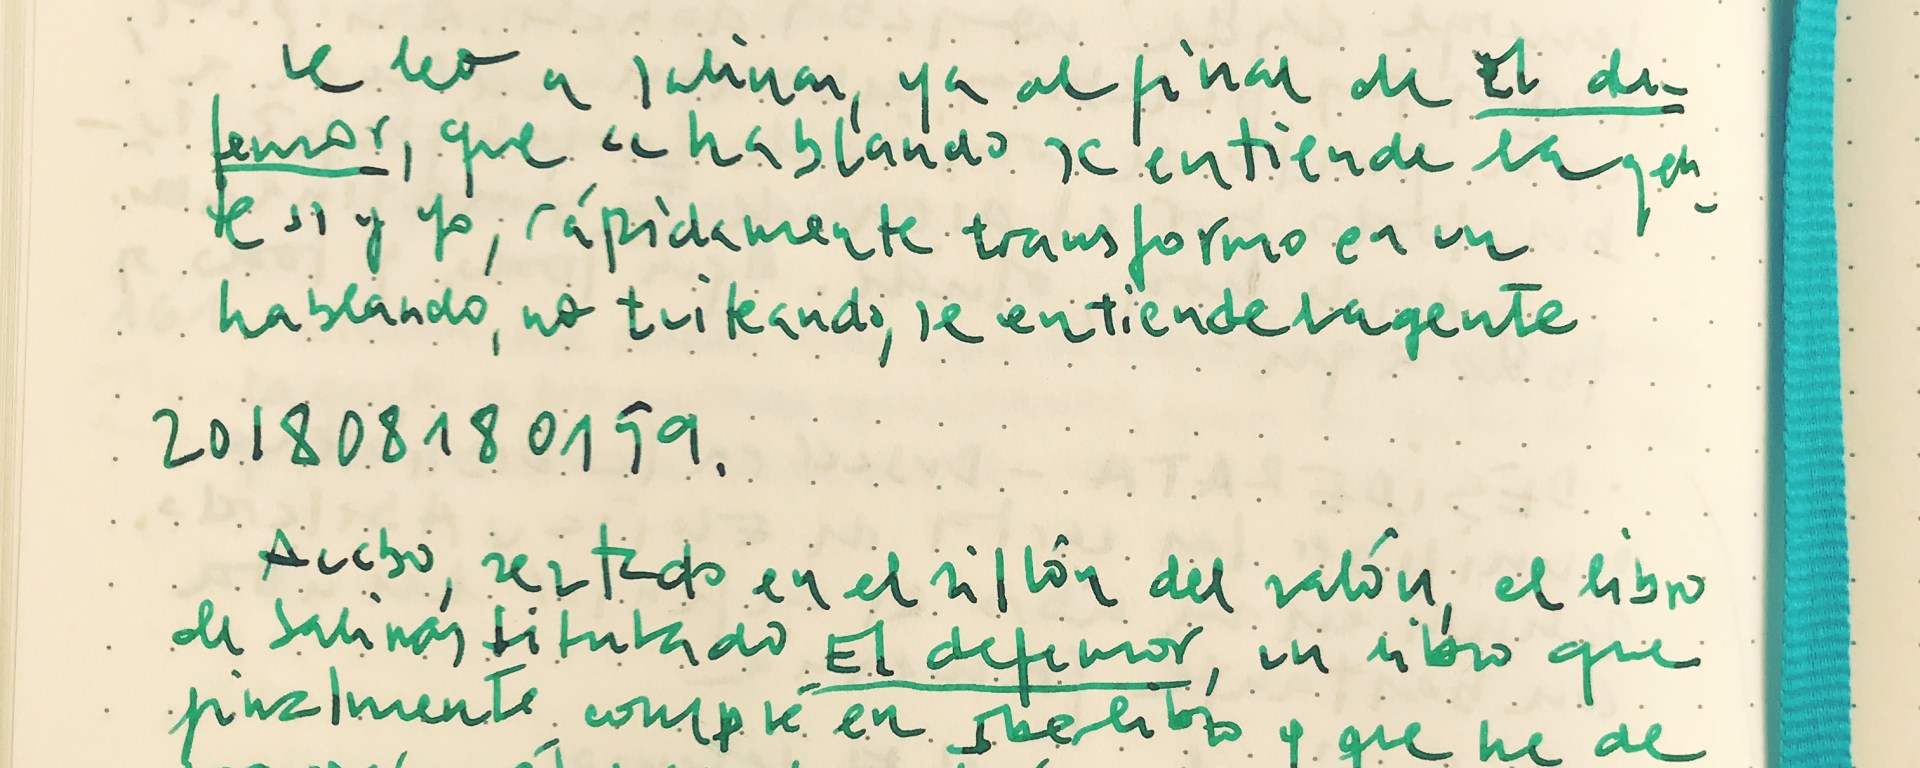 le leo a Salinas, ya al final de El de-
fensor, que hablando se entiende la gen-
te y yo, rápidamente transformo en un
hablando, no tuiteando, se entiende la gente
201808180159.
Acabo, sentado en el sillón del salón, el libro
de Salinas titulado El defensor, un libro que
finalmente compré en Iberlibro y que he de